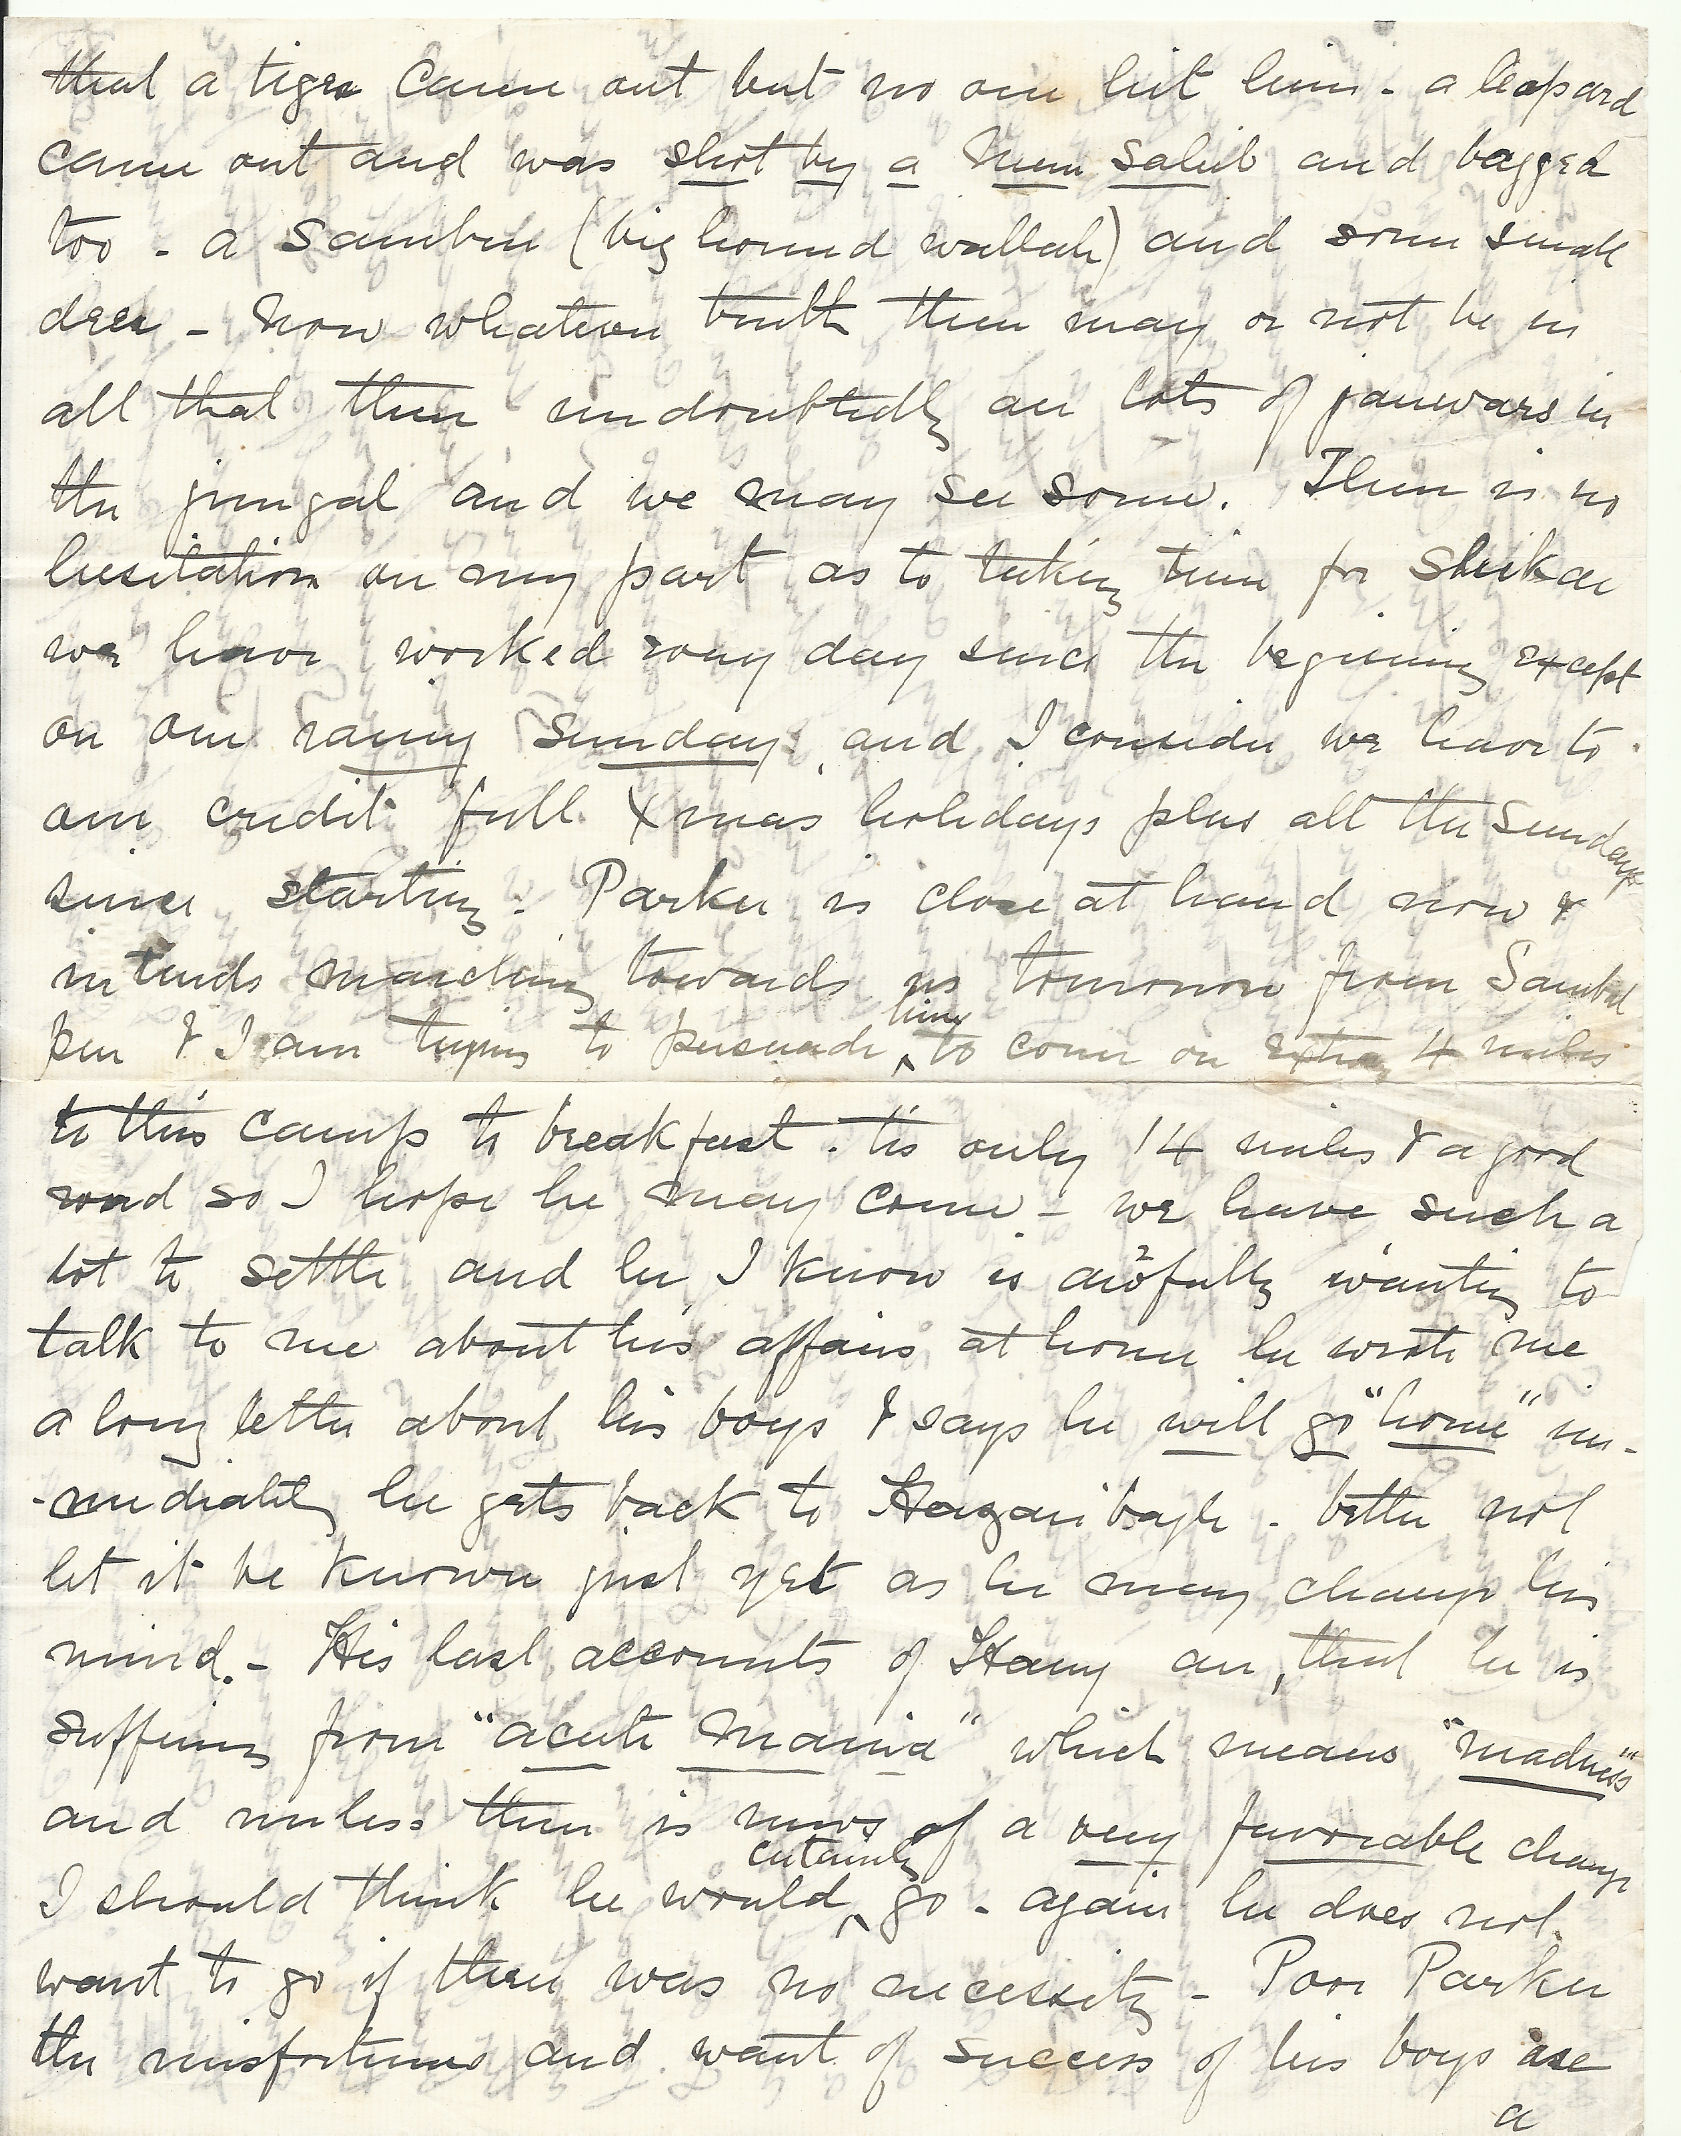 that a tiger came out but no one hit him - a leopard
came out and was shot by a Mem Sahib and bagged
too - a Sambur (big hound wallah) and some small
deer - Now whatever truth there may or not be in
all that there undoubtedly are lots of janwars in
the jungal and we may see some. There is no
hesitation on my part as to taking time for Shikar
we have worked every day since the begining except
on one rainy Sunday, and I consider we have to
our credit full Xmas holidays plus all the Sundays
since starting. Parker is close at hand now &
intends marching towards us tomorrow from Sambul
pur & I am trying to persuade him to come on extra 4 miles
to this camp to breakfast. tis only 14 miles & a good
road so I hope he may come - we have such a
lot to settle and he I know is awfully wanting to
talk to me about his affairs at home he wrote me
a long letter about his boys & says he will go "home" im-
-mediately he gets back to Hazaribagh - better not
let it be known just yet as he may change his
mind. - His last accounts of Harry are, that he is
suffering from "acute Mania" which means "madness"
and unless there is news of a very favorable change
I should think he would certainly go - again he does not
want to go if there was no necessity - Poor Parker
the misfortunes and want of success of his boys are
a